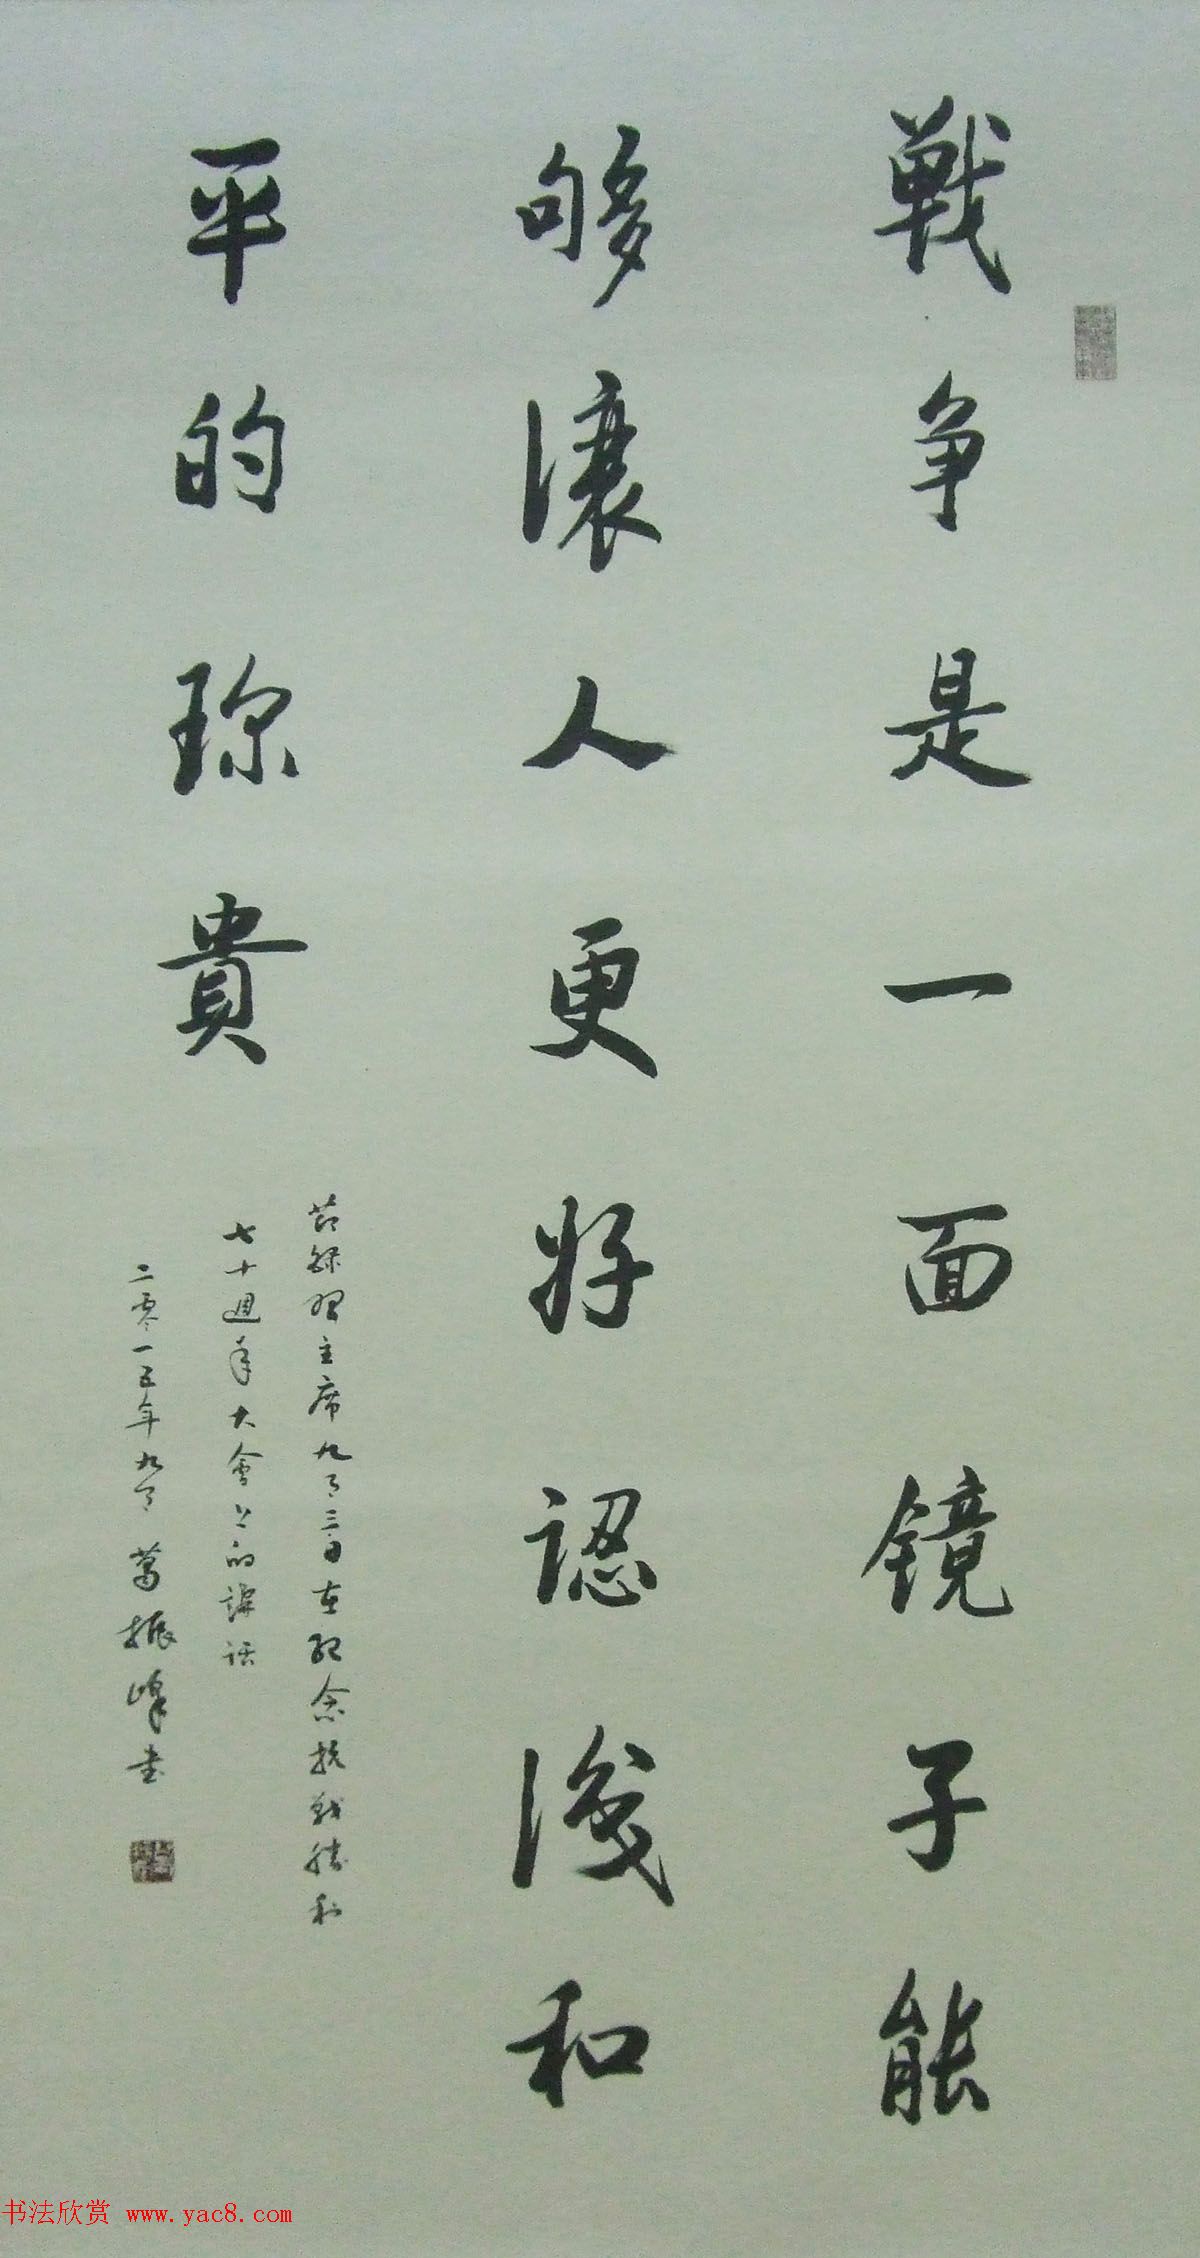 戦争是一面镜子能
够讓人更好認識和
平的珎貴
节録習主席九月三日在紀念抗战勝利
七十週年大會上的講話
二零一五年九月 葛振峰书
书法欣赏 www.yac8.com